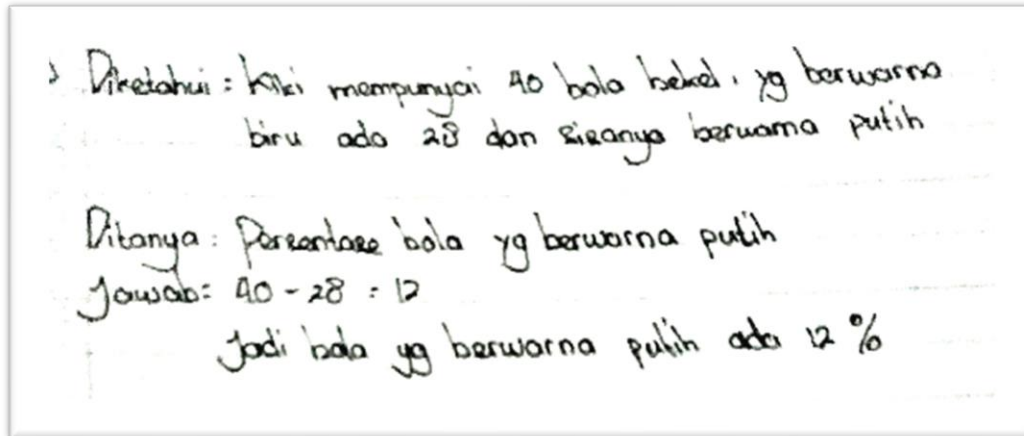 Diketahui : Kiki mempunyai 40 bola bekel, yg berwarna
biru ada 28 dan sisanya berwarna putih
Ditanya : Persentase bola yg berwarna putih
Jawab : 40 - 28 = 12
Jadi bola yg berwarna putih ada 12 %